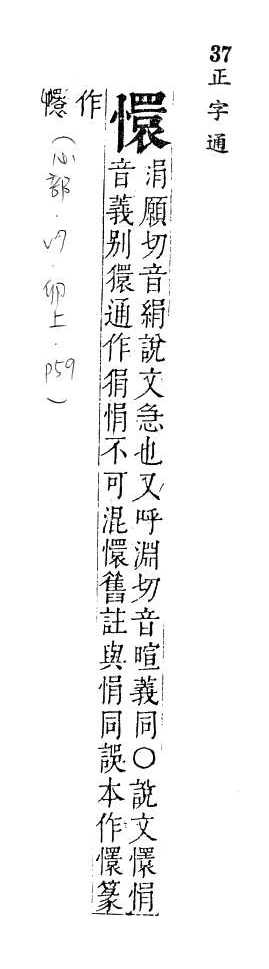 37 正字通
懁
涓願切音絹說文急也又呼淵切音暄義同○說文懁悁
音義别獧通作狷悁不可混懁舊註與悁同誤本作懁篆
作
(心部．卯上．p59)